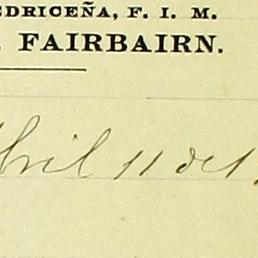 EDRICEÑA, F. I. M.
FAIRBAIRN.
bril 11 de 1